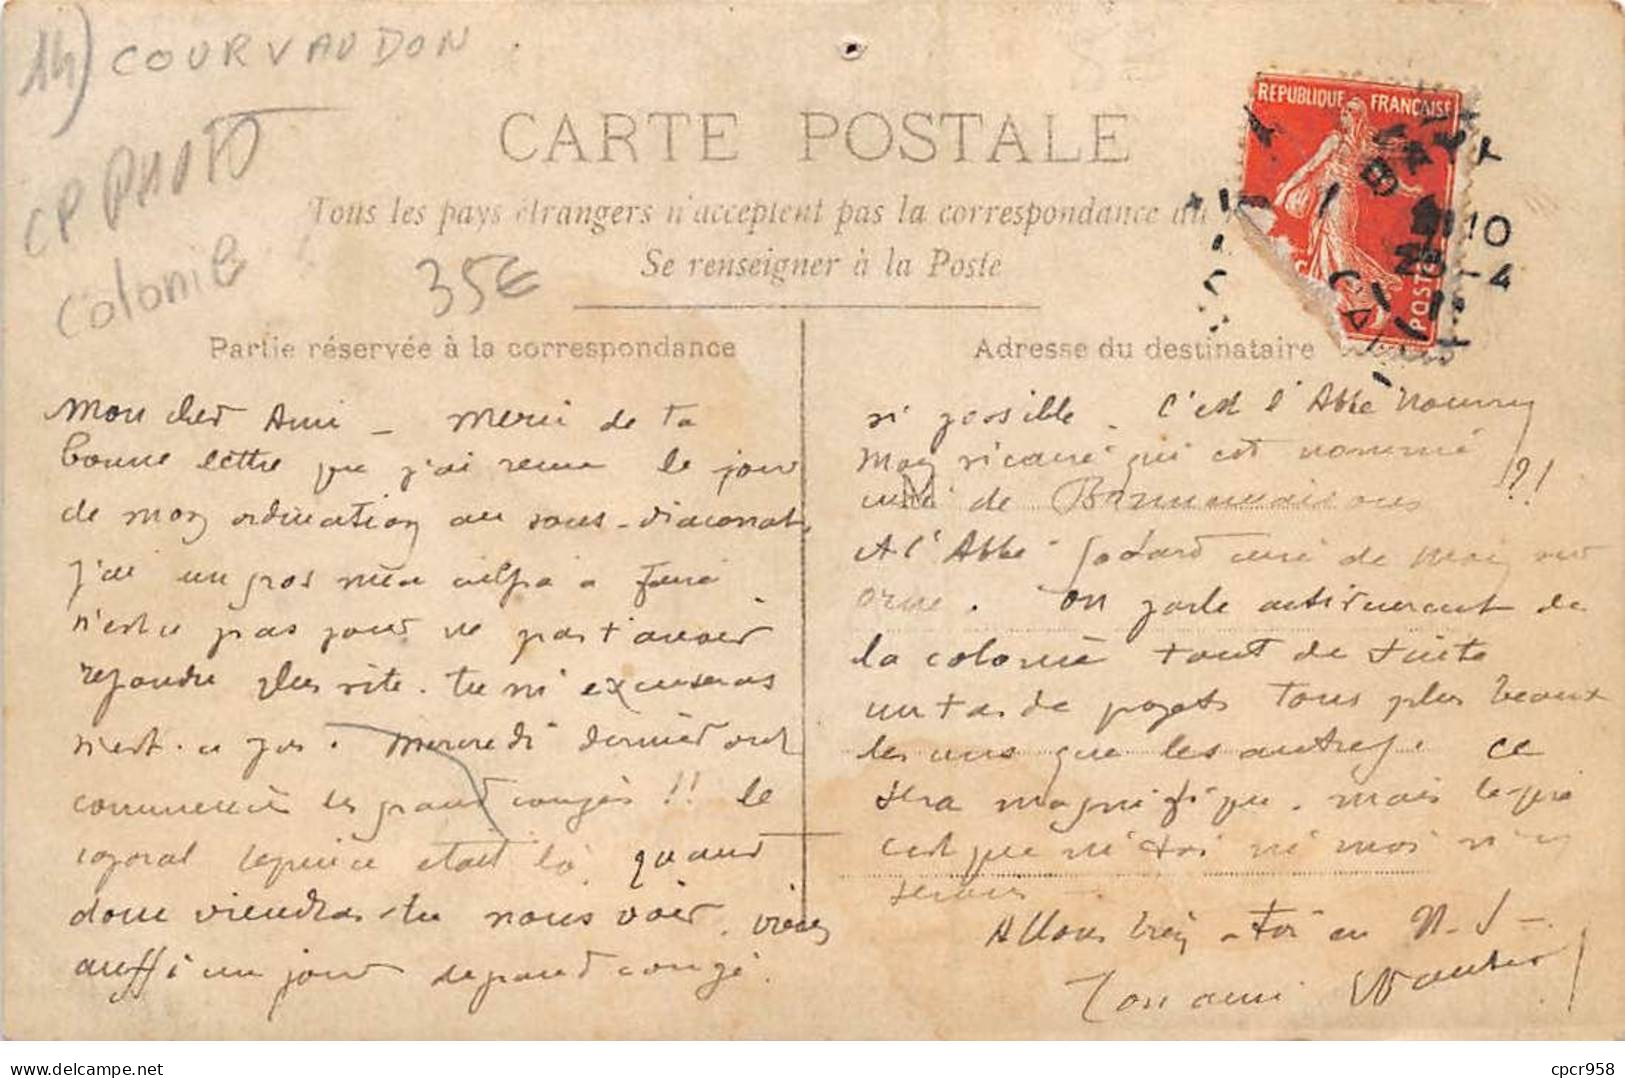 14) COURVAUDON
CP PHOTO
colonie
35€
CARTE POSTALE
Tous les pays étrangers n'acceptent pas la correspondance au
Se renseigner à la Poste
REPUBLIQUE FRANÇAISE
POSTES
10
25-4
11
Partie réservée à la correspondance
Mon cher Ami – merci de ta
bonne lettre que j'ai reçue le jour
de mon ordination au sous-diaconat,
j'ai un gros méa culpa a faire
n'est ce pas pour ne pas t'avoir
répondu plus vite. tu m'excuseras
n'est-ce pas. Mercredi dernier ont
commencé les grands congés !! le
caporal Lepuice était là. quand
donc viendras-tu nous voir, viens
aussi un jour de grand congé.
Adresse du destinataire
si possible. C'est l'Abbé Nourry
mon vicaire qui est nommé
curé de Bonnemaison ?!
M
et l'Abbé Godard curé de May sur
orne. On parle activement de
la colonie tout de suite
un tas de projets tous plus beaux
les uns que les autres. ce
sera magnifique. mais le pire
c'est que ni toi ni moi n'y
serons –
Allons bien à toi en N.S –
Ton ami
cpcr958